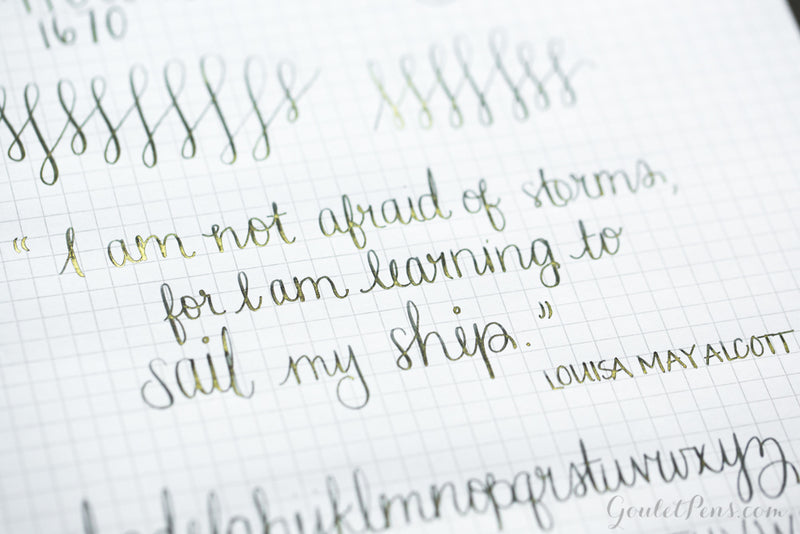 1670
“I am not afraid of storms,
for I am learning to
sail my ship.”
LOUISA MAY ALCOTT
jklmnopqrstuvwxyz
GouletPens.com